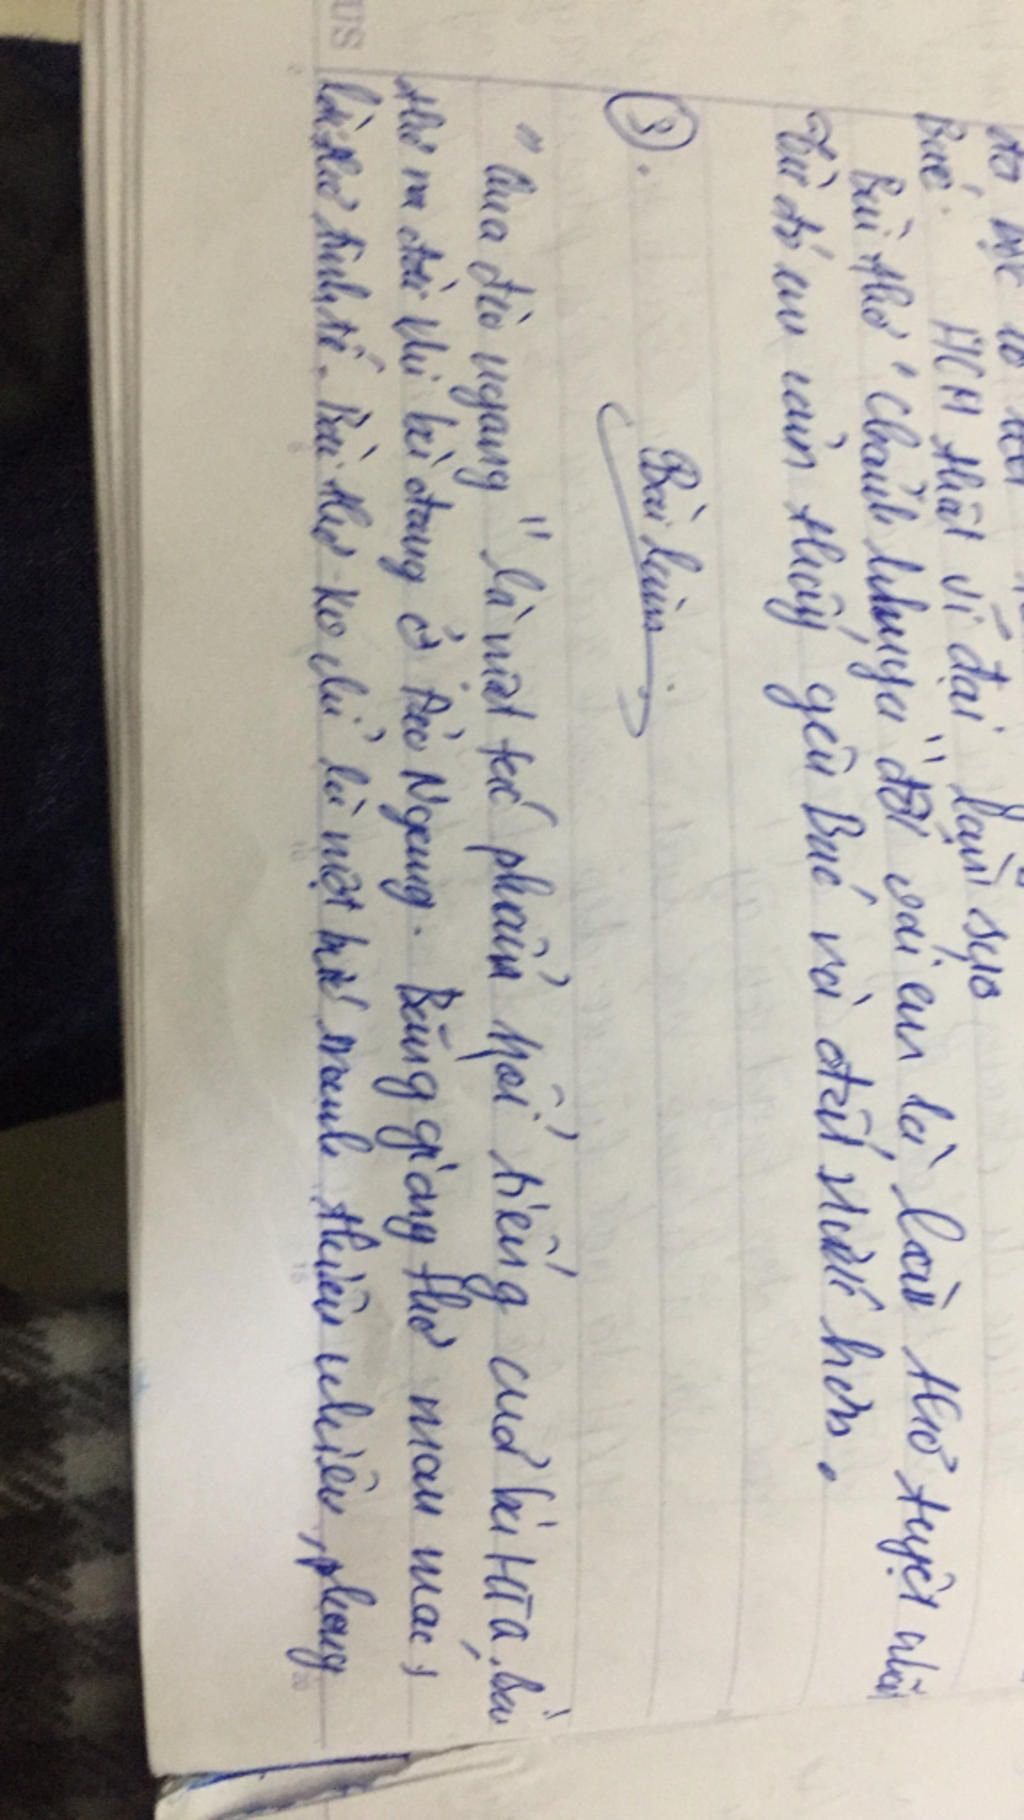 Bác. HCM thật vĩ đại
Bài thơ "Cảnh khuya" đối với em là bài thơ tuyệt
Từ đó em càng thấy yêu Bác và đất nước hơn.
3.
Bài làm
"Qua đèo ngang" là một tác phẩm nổi tiếng của bà HTQ, bài
thơ ra đời khi bà đang ở Đèo Ngang. Bằng giọng thơ man mác,
lời thơ tinh tế. Bài thơ ko chỉ là một bức tranh thiên nhiên, phong